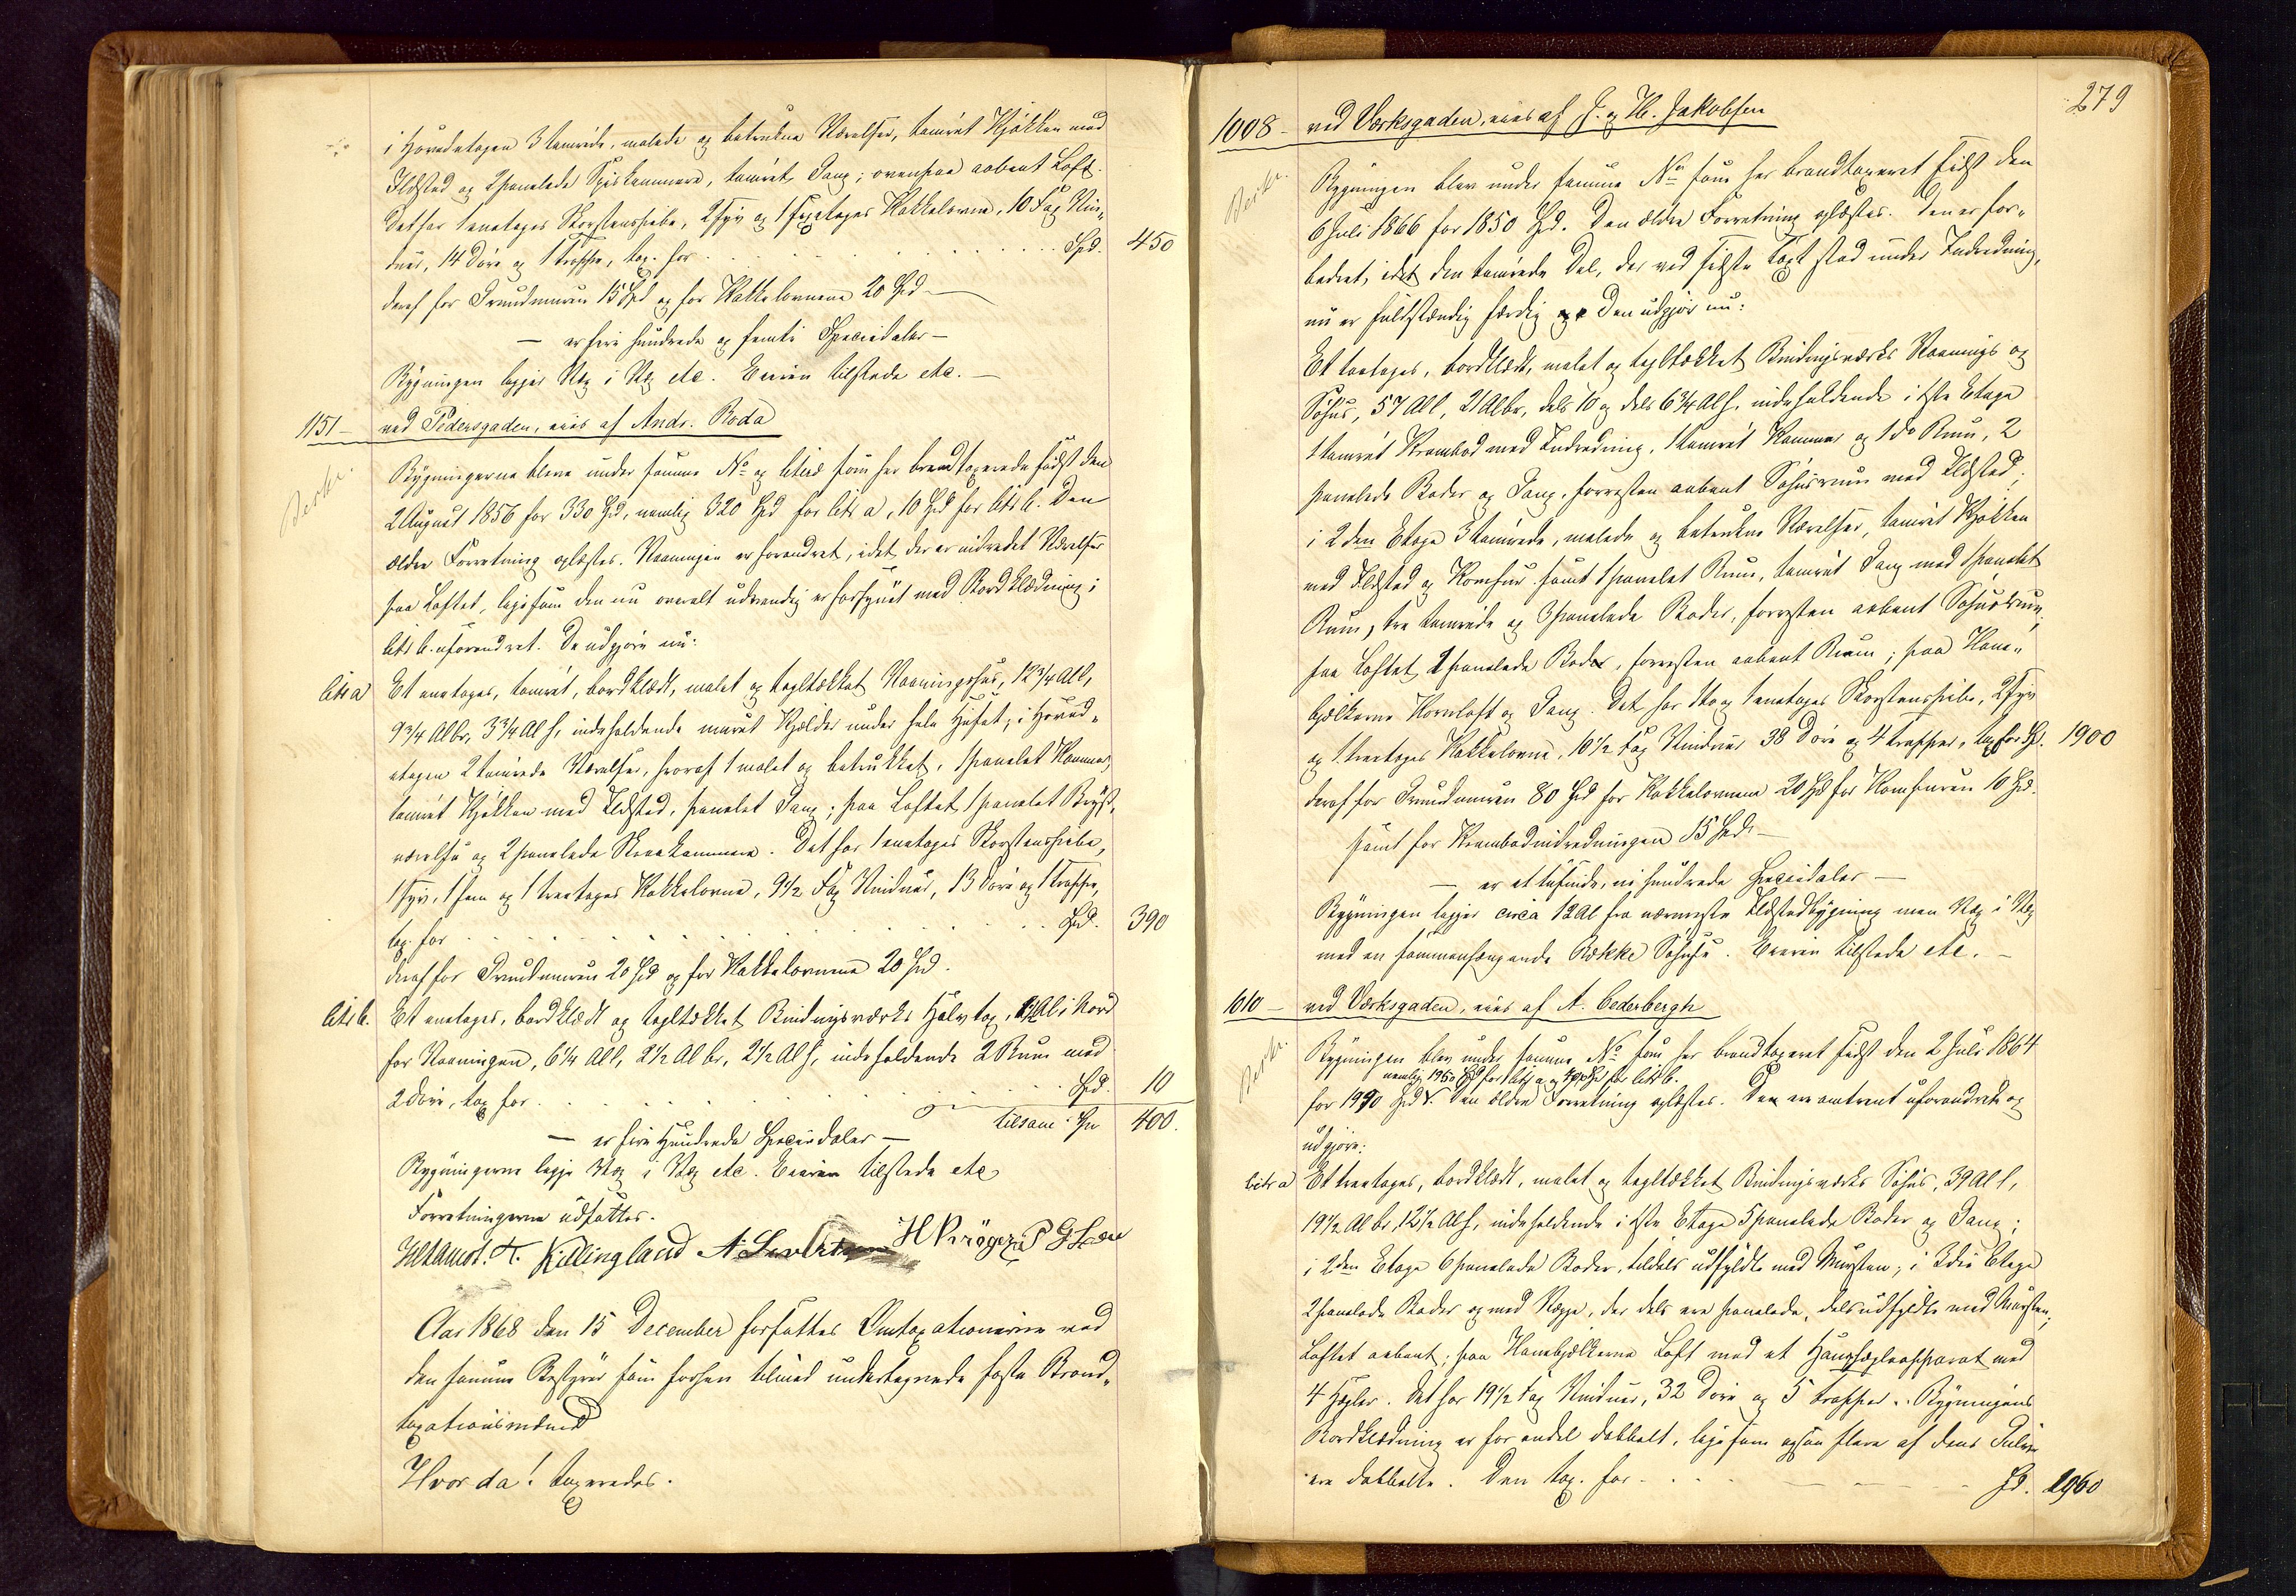 i Hovedetagen 3 tømrede, malede og betrukne Værelser, tømret Kjøkken med
Ildsted og 2 panelede Spiskammere, tømret Gang; ovenpaa aabent Loft.
Det har 1 enetages Skorstenspibe, 2 fyr og 1 sexetages Kakkelovne, 10 Fag Vin-
duer, 14 Døre og 1 Trappe, tax. for . . . Spd. 450
deraf for Grundmuren 15 Spd og for Kakkelovnene 20 Spd —
— er fire hundrede og femti Speciedaler —
Bygningen ligger Væg i Væg etc. Eieren tilstede etc. —
1151 — ved Pedersgaden, eies af Andr. Roda
Beskr.
Bygningerne bleve under samme No og litra som her brandtaxerede sidst den
2 August 1856 for 330 Spd, nemlig 320 Spd for litr a, 10 Spd for litr b. Den
ældre Forretning oplæstes. Vaaningen er forandret, idet der er indredet Værelser
paa Loftet, ligesom den nu overalt udvendig er forsynet med Bordklædning;
litr b. uforandret. De udgjøre nu:
litr a Et enetages, tømret, bordklædt, malet og tagltækket Vaaningshus, 12 3/4 Al l,
9 3/4 Al br, 3 3/4 Al h, indeholdende muret Kjælder under hele Huset; i Hoved-
etagen 2 tømrede Værelser, hvoraf 1 malet og betrukket, 1 panelet Kammer,
tømret Kjøkken med Ildsted, panelet Gang; paa Loftet 1 panelet Bryst-
værelse og 2 panelede Skraakammere. Det har 1 enetages Skorstenspibe,
1 fyr, 1 fem og 1 treetages Kakkelovne, 9 1/2 Fag Vinduer, 13 Døre og 1 Trappe,
tax. for . . . Spd. 390
deraf for Grundmuren 20 Spd og for Kakkelovnene 20 Spd.
litr b. Et enetages, bordklædt og tagltækket Bindingsværks Halvtag, Al i Nord
for Vaaningen, 6 1/4 Al l, 2 1/2 Al br, 2 1/2 Al h, indeholdende 2 Rum med
2 Døre, tax for . . . Spd. 10
tilsam. Spd 400.
— er fire Hundrede Speciedaler —
Bygningerne ligge Væg i Væg etc. Eieren tilstede etc
Forretningerne udsattes.
T. Kiellingland A. Sivertsen H Krøger P G
Aar 1868 den 15 December fortsattes Omtaxationerne ved
den samme Bestyrer som forhen tilmed undertegnede faste Brand-
taxationsmænd
Hvor da! taxeredes.
279
1008 — ved Værksgaden, eies af J. og H. Jakobsen
Beskr.
Bygningen blev under samme No som her brandtaxeret sidst den
6 Juli 1866 for 1850 Spd. Den ældre Forretning oplæstes. Den er for-
bedret, idet den tømrede Del, der ved sidste Taxt stod under Indredning,
nu er fuldstændig færdig. Den udgjør nu:
Et toetages, bordklædt, malet og tagltækket Bindingsværks Vaanings og
Søhus, 57 Al l, 21 Al br, dels 10 og dels 6 3/4 Al h. indeholdende i 1ste Etage
1 tømret Krambod med Indredning, 1 tømret Kammer og 1 do Rum, 2
panelede Boder og Gang, forresten aabent Søhusrum med Ildsted;
i 2den Etage 3 tømrede, malede og betrukne Værelser, tømret Kjøkken
med Ildsted og Komfur samt 1 panelet Rum, tømret Gang med 1 panelet
Rum, tre tømrede og 3 panelede Boder, forresten aabent Søhusrum;
paa Loftet 2 panelede Boder, forresten aabent Rum; paa Hane-
bjælkerne Kornloft og Gang. Det har 1 to og 1 enetages Skorstenspibe, 2 fyr
og 1 treetages Kakkelovne, 16 1/2 Fag Vinduer 38 Døre og 4 Trapper, tax for Sp. 1900
deraf for Grundmuren 80 Spd for Kakkelovnene 20 Spd for Komfuren 10 Spd.
samt for Krambodindredningen 15 Spd. —
— er et tusinde, ni hundrede Speciedaler —
Bygningen ligger circa 12 Al fra nærmeste Ildstedbygning men Væg i Væg
med en sammenhængende Række Søhuse. Eieren tilstede etc. —
1010 — ved Værksgaden, eies af A. Cederbergh
Beskr.
Bygningen blev under samme No som her brandtaxeret sidst den 2 Juli 1864
nemlig 1950 Spd for litr a og Spd for litr b.
for 1990 Spd. Den ældre Forretning oplæstes. Den ere omtrent uforandrede og
udgjøre:
Litr a Et treetages, bordklædt, malet og tagltækket Bindingsværks Søhus, 39 Al l,
19 1/2 Al br, 12 1/2 Al h, indeholdende i 1ste Etage 5 panelede Boder og Gang;
i 2den Etage 6 panelede Boder, tildels udfyldte med Mursten; i 3die Etage
2 panelede Boder og med Vægge, der dels ere panelede, dels udfyldte med Mursten;
Loftet aabent; paa Hanebjælkerne Loft med et med
4 . Det har 19 1/2 Fag Vinduer, 32 Døre og 5 Trapper. Bygningens
Bordklædning er for endel dobbelt, ligesom ogsaa flere af dens Gulve
ere dobbelte. Den tax. for . . . Sp. 1960